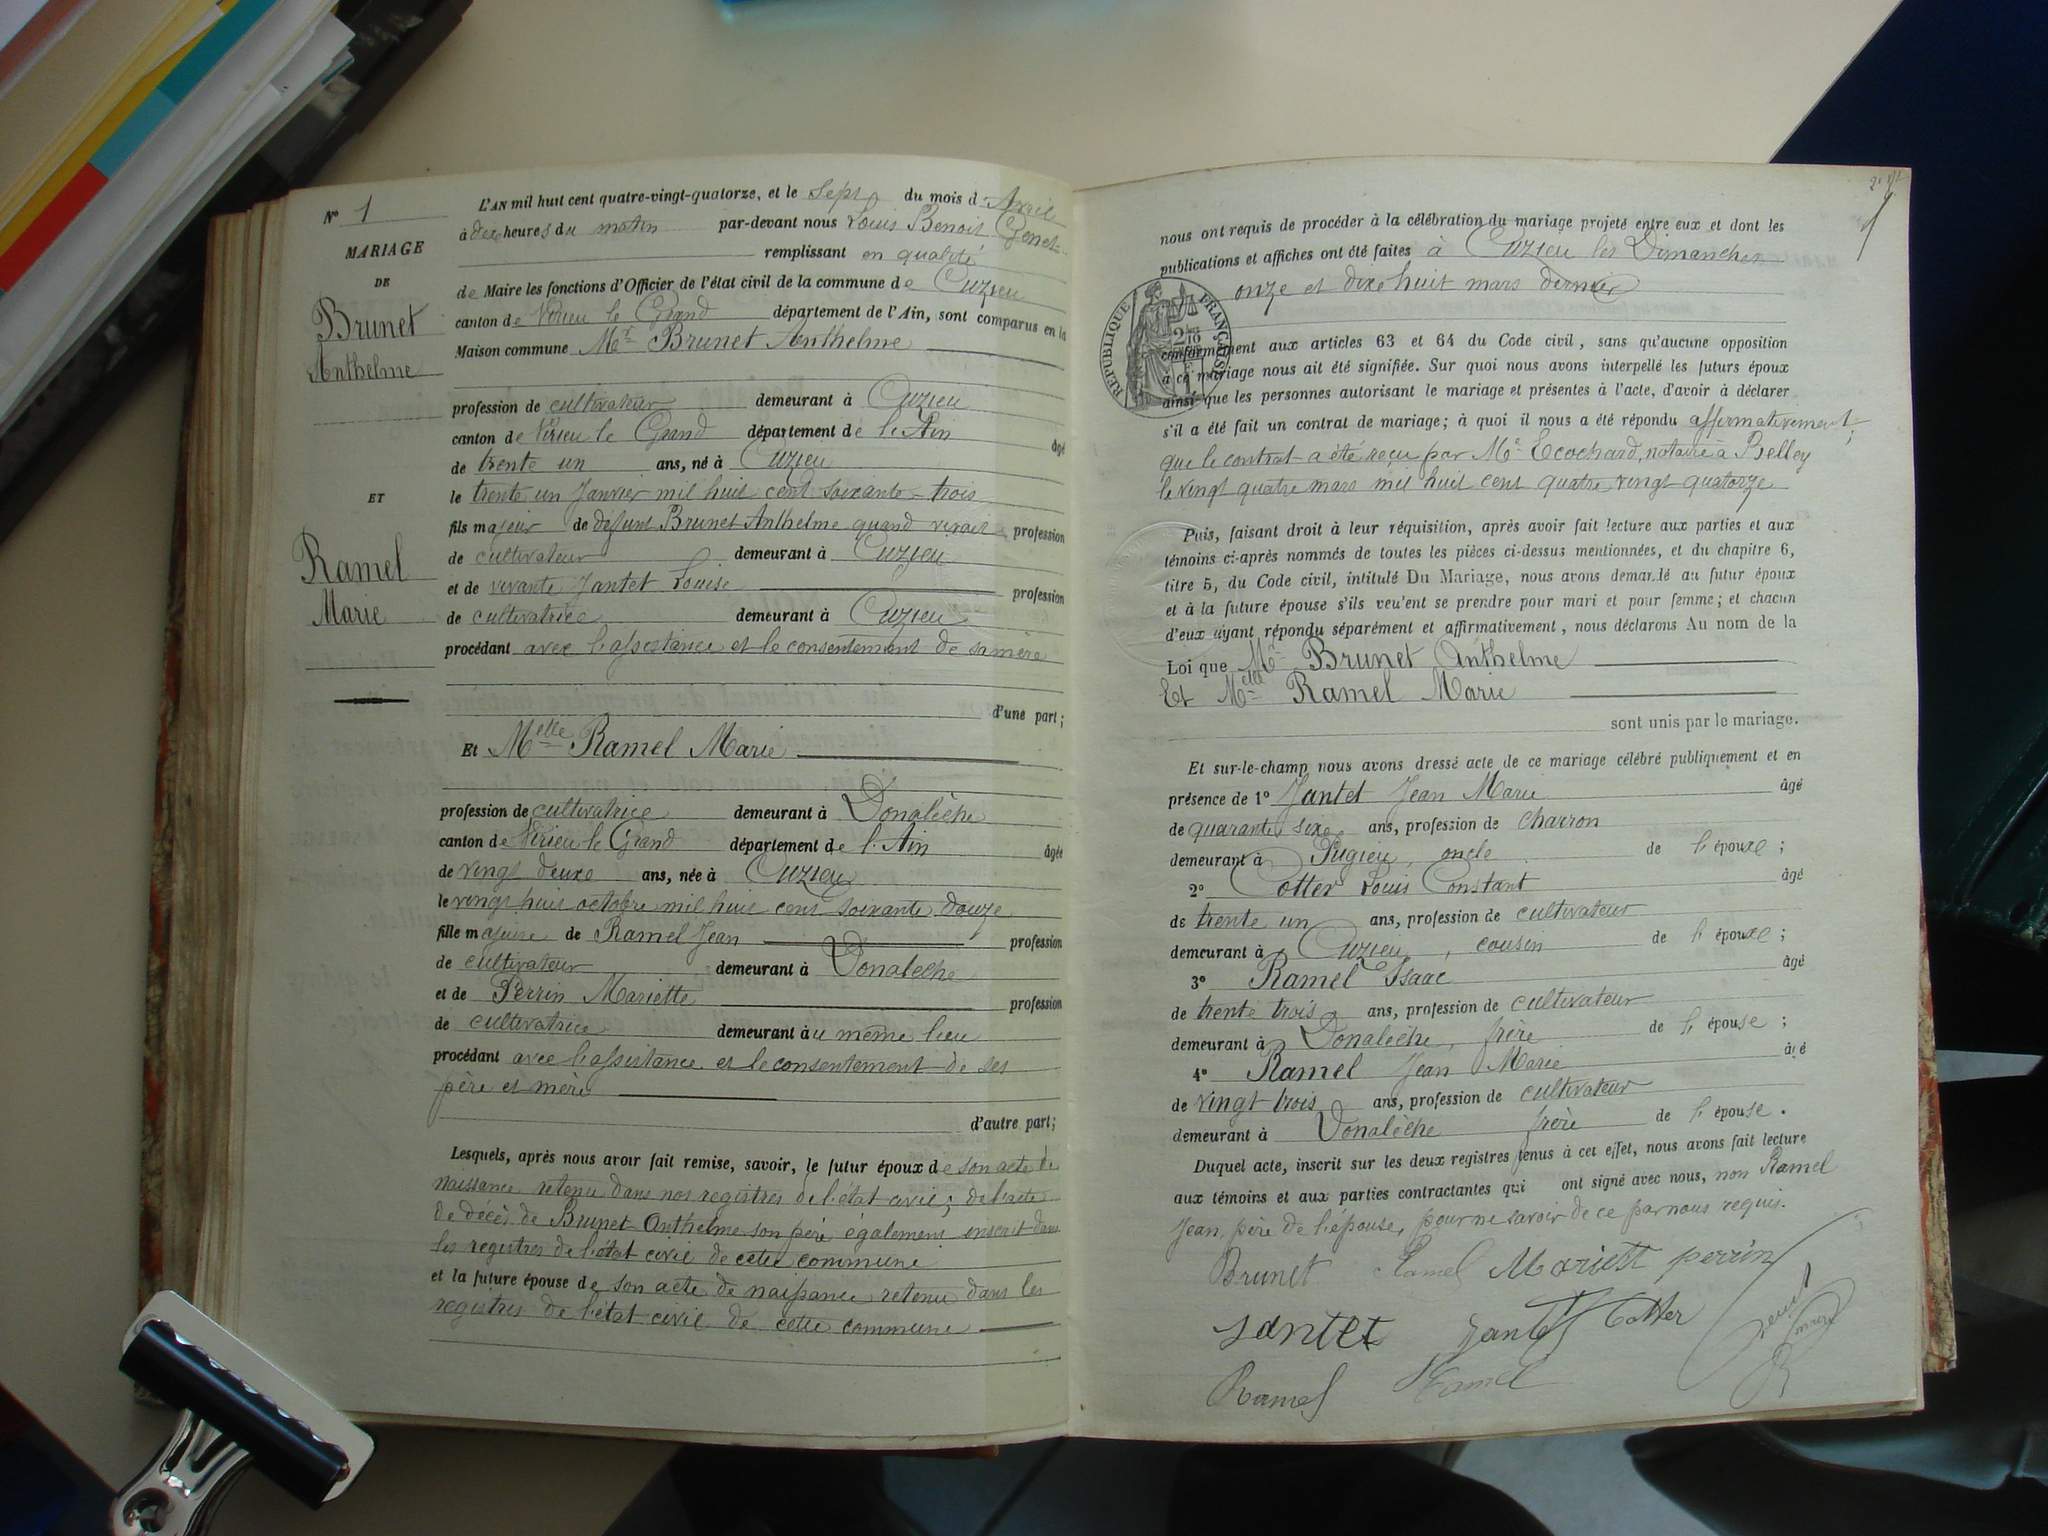 N° 1
MARIAGE
DE
Brunet
Anthelme
ET
Ramel
Marie
L'AN mil huit cent quatre-vingt-quatorze, et le sept du mois d'Avril
à dix heures du matin par-devant nous Louis Benoit
remplissant en qualité
de Maire les fonctions d'Officier de l'état civil de la commune de Cuzieu
canton de Virieu le Grand département de l'Ain, sont comparus en la
Maison commune Mr Brunet Anthelme
profession de cultivateur demeurant à Cuzieu
canton de Virieu le Grand département de l'Ain âgé
de trente un ans, né à Cuzieu
le trente un Janvier mil huit cent soixante-trois
fils majeur de défunt Brunet Anthelme quand vivait profession
de cultivateur demeurant à Cuzieu
et de vivante Jantet Louise profession
de cultivatrice demeurant à Cuzieu
procédant avec l'assistance et le consentement de sa mère
d'une part;
Et Melle Ramel Marie
profession de cultivatrice demeurant à Donalèche
canton de Virieu le Grand département de l'Ain âgée
de vingt deux ans, née à Cuzieu
le vingt huit octobre mil huit cent soixante douze
fille majeure de Ramel Jean profession
de cultivateur demeurant à Donalèche
et de Perrin Mariette profession
de cultivatrice demeurant au même lieu
procédant avec l'assistance et le consentement de ses
père et mère
d'autre part;
Lesquels, après nous avoir fait remise, savoir, le futur époux de son acte de
naissance retenu dans nos registres de l'état civil; de l'acte
de décès de Brunet Anthelme son père également inscrit dans
les registres de l'état civil de cette commune
et la future épouse de son acte de naissance retenu dans les
registres de l'état civil de cette commune
nous ont requis de procéder à la célébration du mariage projeté entre eux et dont les
publications et affiches ont été faites à Cuzieu les Dimanches
onze et dix huit mars dernier
RÉPUBLIQUE FRANÇAISE
conformément aux articles 63 et 64 du Code civil, sans qu'aucune opposition
à ce mariage nous ait été signifiée. Sur quoi nous avons interpellé les futurs époux
ainsi que les personnes autorisant le mariage et présentes à l'acte, d'avoir à déclarer
s'il a été fait un contrat de mariage; à quoi il nous a été répondu affirmativement;
que le contrat a été reçu par Me Ecochard, notaire à Belley
le vingt quatre mars mil huit cent quatre vingt quatorze
Puis, faisant droit à leur réquisition, après avoir fait lecture aux parties et aux
témoins ci-après nommés de toutes les pièces ci-dessus mentionnées, et du chapitre 6,
titre 5, du Code civil, intitulé Du Mariage, nous avons demandé au futur époux
et à la future épouse s'ils veulent se prendre pour mari et pour femme; et chacun
d'eux ayant répondu séparément et affirmativement, nous déclarons Au nom de la
Loi que Mr Brunet Anthelme
Et Melle Ramel Marie
sont unis par le mariage.
Et sur-le-champ nous avons dressé acte de ce mariage célébré publiquement et en
présence de 1° Jantet Jean Marie âgé
de quarante six ans, profession de charron
demeurant à Pugieu, oncle de l'époux;
2° Cotter Louis Constant âgé
de trente un ans, profession de cultivateur
demeurant à Cuzieu, cousin de l'époux;
3° Ramel Isaac âgé
de trente trois ans, profession de cultivateur
demeurant à Donalèche, frère de l'épouse;
4° Ramel Jean Marie âgé
de vingt trois ans, profession de cultivateur
demeurant à Donalèche frère de l'épouse.
Duquel acte, inscrit sur les deux registres tenus à cet effet, nous avons fait lecture
aux témoins et aux parties contractantes qui ont signé avec nous, non Ramel
Jean, père de l'épouse, pour ne savoir de ce par nous requis.
Brunet Ramel Mariett perrin
Jantet Jantet Cotter
Ramel Ramel